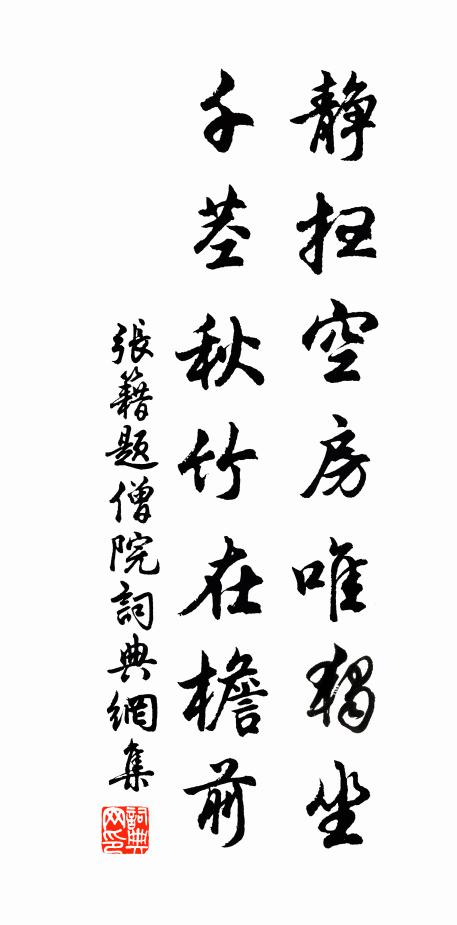 靜掃空房唯獨坐
千莖秋竹在檐前
張籍題僧院詞典網集
詞典网印